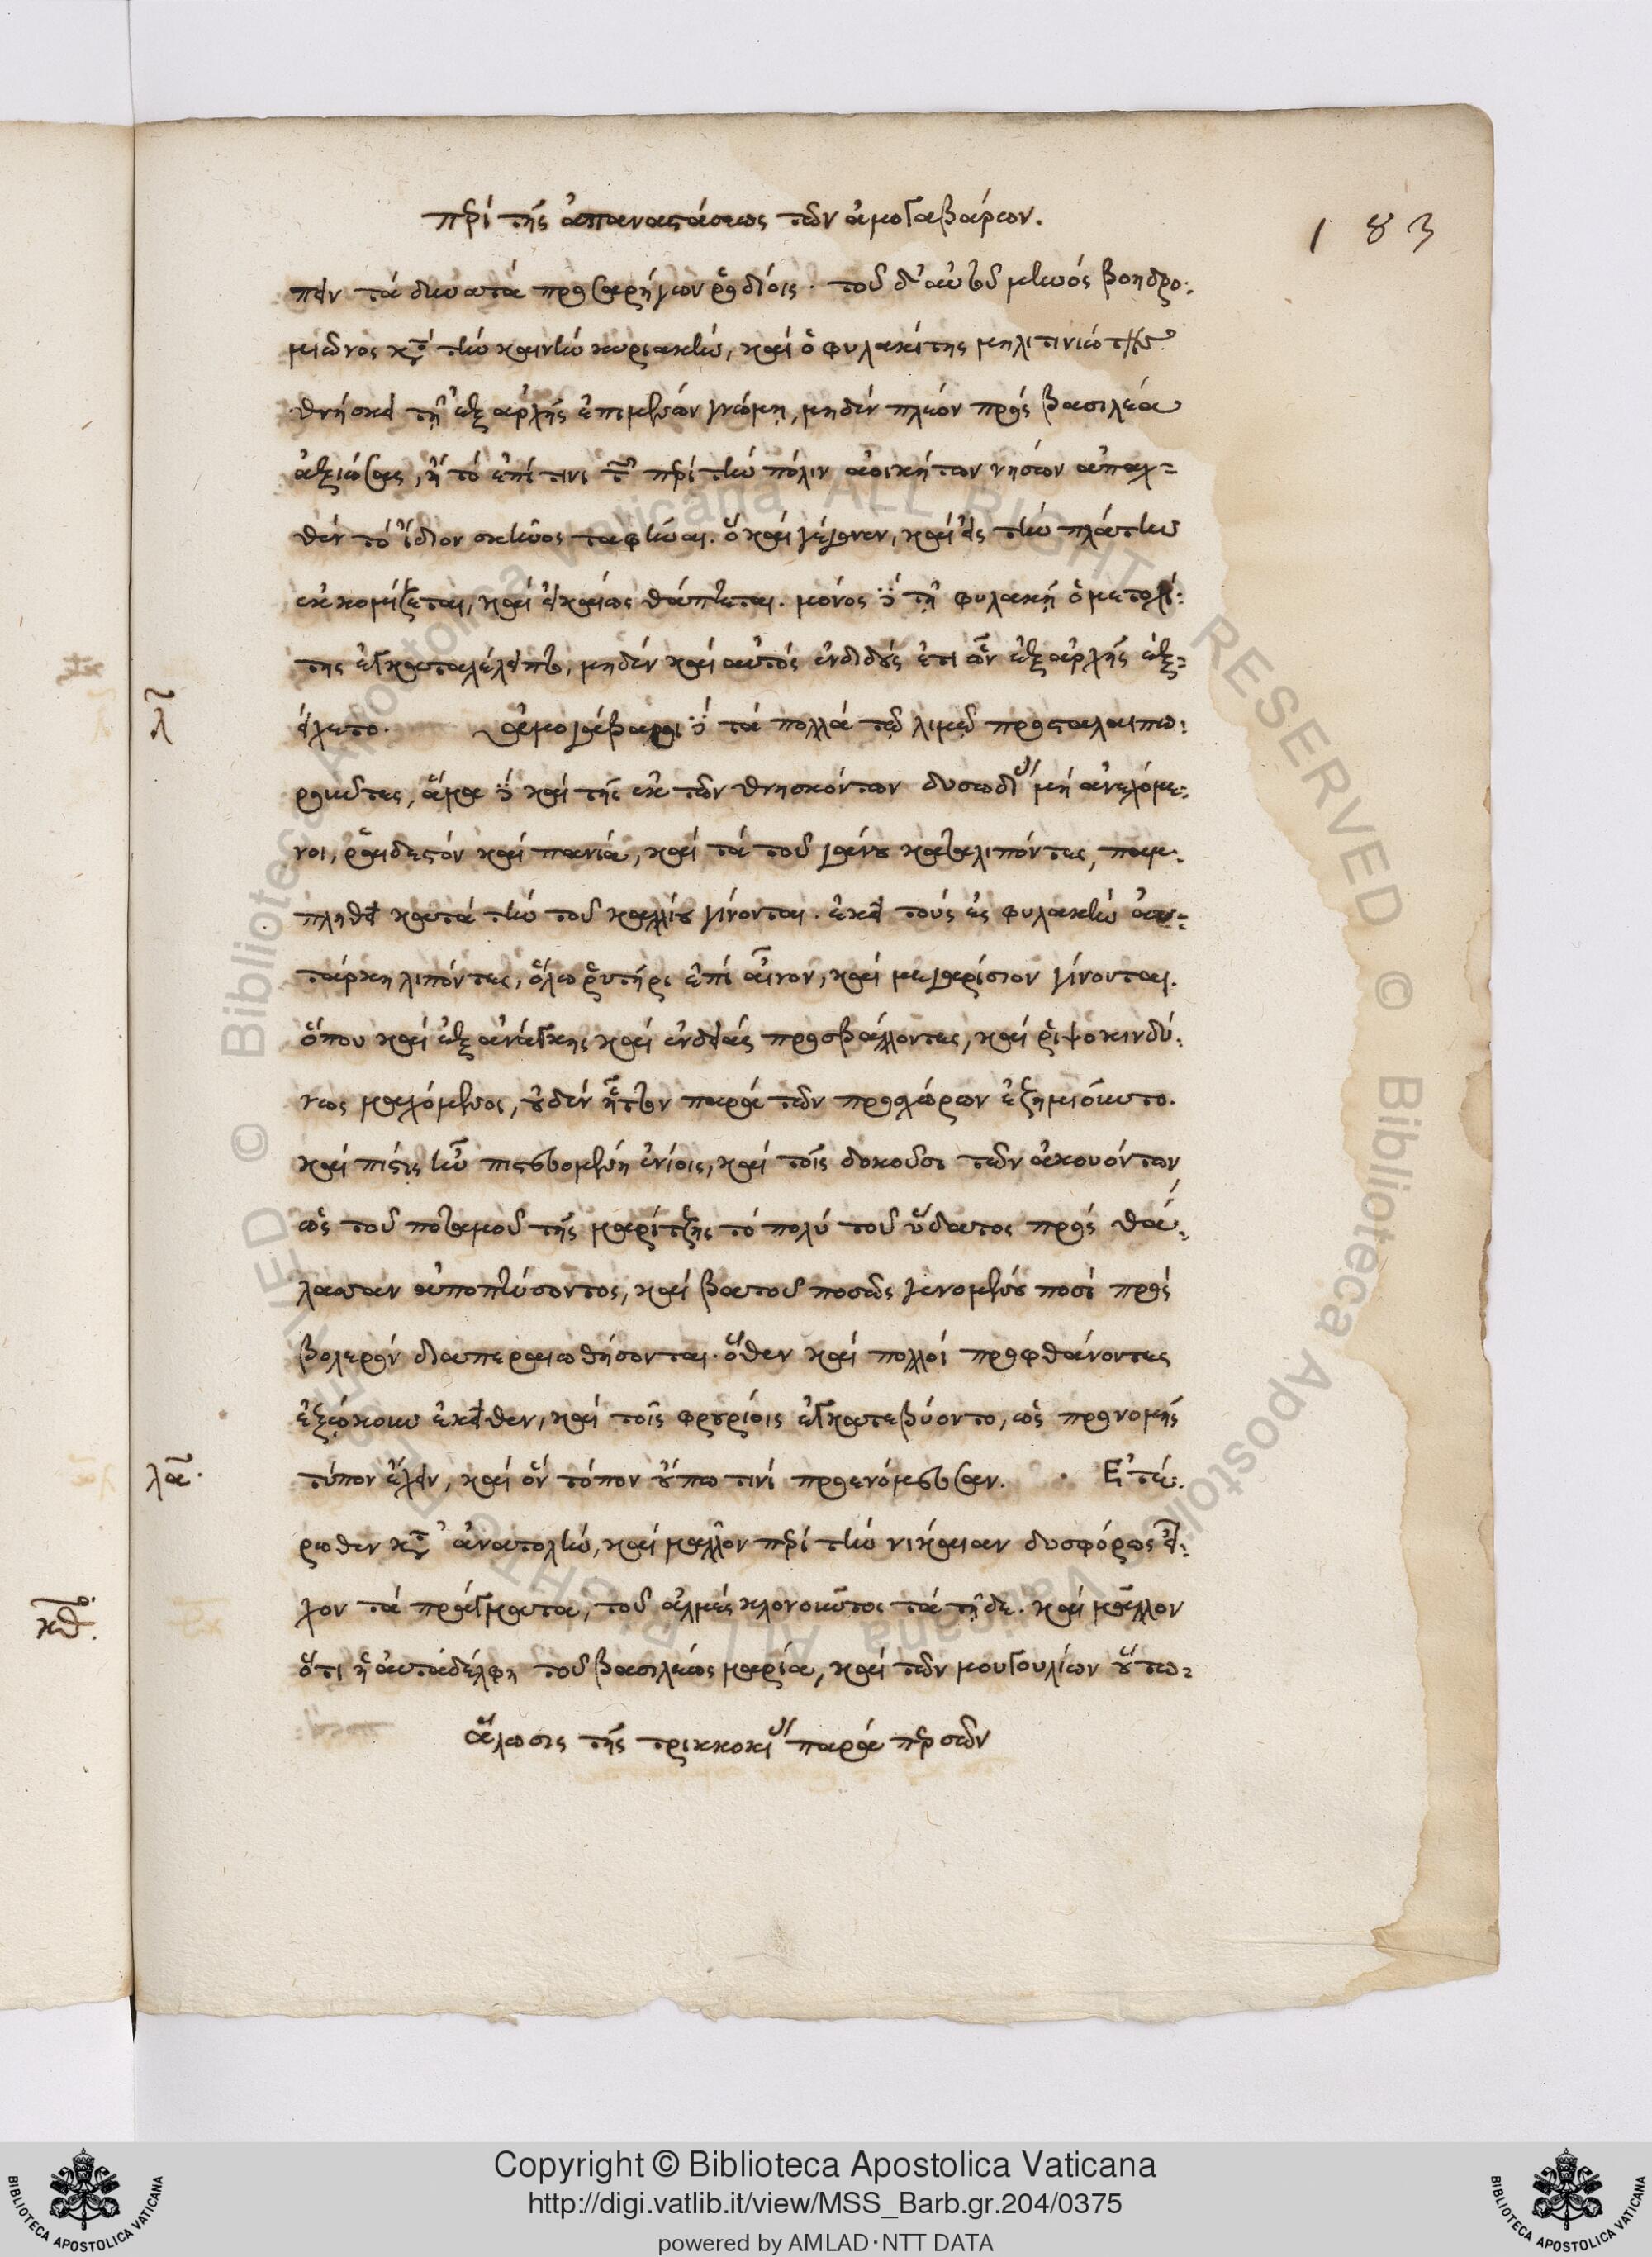 περὶ τῆς ἀπαναστάσεως τῶν ἀμογαβάρων.
183
πειν τὰ δυνατὰ προσαρήγων ῥᾳδίοις. τοῦ δ' αὐτοῦ μηνὸς βοηδρο-
μιῶνος κατὰ τὴν καινὴν κυριακὴν, καὶ ὁ φυλακίτης μηλιτινιώτης
θνήσκει τῇ ἐξ ἀρχῆς ἐπιμένων γνώμῃ, μηδὲν πλέον πρὸς βασιλέα
ἀξιώσας, ἢ τὸ ἐπί τινι τῶν περὶ τὴν πόλιν ἀοικήτων νησίων ἀπαχ-
θὲν τὸ ἴδιον σκῆνος ταφῆναι. ὃ καὶ γέγονεν, καὶ εἰς τὴν πλάτην
ἐκκομίζεται, καὶ εἰκαίως θάπτεται. μόνος δὲ τῇ φυλακῇ ὁ μετοχί-
της ἐγκαταλέλειπτο, μηδὲν καὶ αὐτὸς ἐνδιδοὺς ἔτι ὧν ἐξ ἀρχῆς ἐξ-
είχετο. ἀμογάβαροι δὲ τὰ πολλὰ τῷ λιμῷ προσταλαιπω-
ροῦντες, ἅμα δὲ καὶ τῆς ἐκ τῶν θνησκόντων δυσωδίας μὴ ἀνεχόμε-
νοι, ῥαιδεστὸν καὶ πανιὰ, καὶ τὰ τοῦ γάνου καταλιπόντες, παμ-
πληθεὶ κατὰ τὴν τοῦ καλλίου γίνονται. ἐκεῖ τοὺς εἰς φυλακὴν αὐ-
τάρκη λιπόντες, ὅλῳ ῥυτῆρι ἐπὶ αἶνον, καὶ μεγαρίσιον γίνονται.
ὅπου καὶ ἐξ ἀνάγκης καὶ ἐνδείας προσβάλλοντες, καὶ ῥιψοκινδύ-
νως μαχόμενος, οὐδὲν ἧττον παρὰ τῶν προσχώρων ἐζημιοῦντο.
καὶ πίστις ἦν πιστευομένη ἐνίοις, καὶ τοῖς δοκοῦσι τῶν ἀκουόντων,
ὡς τοῦ ποταμοῦ τῆς μαρίτζης τὸ πολὺ τοῦ ὕδατος πρὸς θά-
λασσαν ἀποπτύσοντος, καὶ βατοῦ ποσῶς γενομένου ποσὶ πρὸς
βολερὸν διαπεραιωθήσονται. ὅθεν καὶ πολλοὶ προφθάνοντες
ἐξῴκουν ἐκεῖθεν, καὶ τοῖς φρουρίοις ἐγκατεβύοντο, ὡς προνομῆς
τύπον ἔχειν, καὶ ὃν τόπον οὔπω τινὶ προενόμευσαν. Ἐτέ-
ρωθεν κατ' ἀνατολὴν, καὶ μᾶλλον περὶ τὴν νίκαιαν δυσφόρως εἶ-
χον τὰ πράγματα, τοῦ ἀλμὲς κλονοῦντος τὰ τῇδε. καὶ μᾶλλον
ὅτι ἡ αὐταδέλφη τοῦ βασιλέως μαρία, καὶ τῶν μουγουλίων οὕτω-
ἅλωσις τῆς τρικκοκίας παρὰ περσῶν
λ
λα.
κθ.
Copyright © Biblioteca Apostolica Vaticana
http://digi.vatlib.it/view/MSS_Barb.gr.204/0375
powered by AMLAD·NTT DATA
BIBLIOTECA APOSTOLICA VATICANA
BIBLIOTECA APOSTOLICA VATICANA